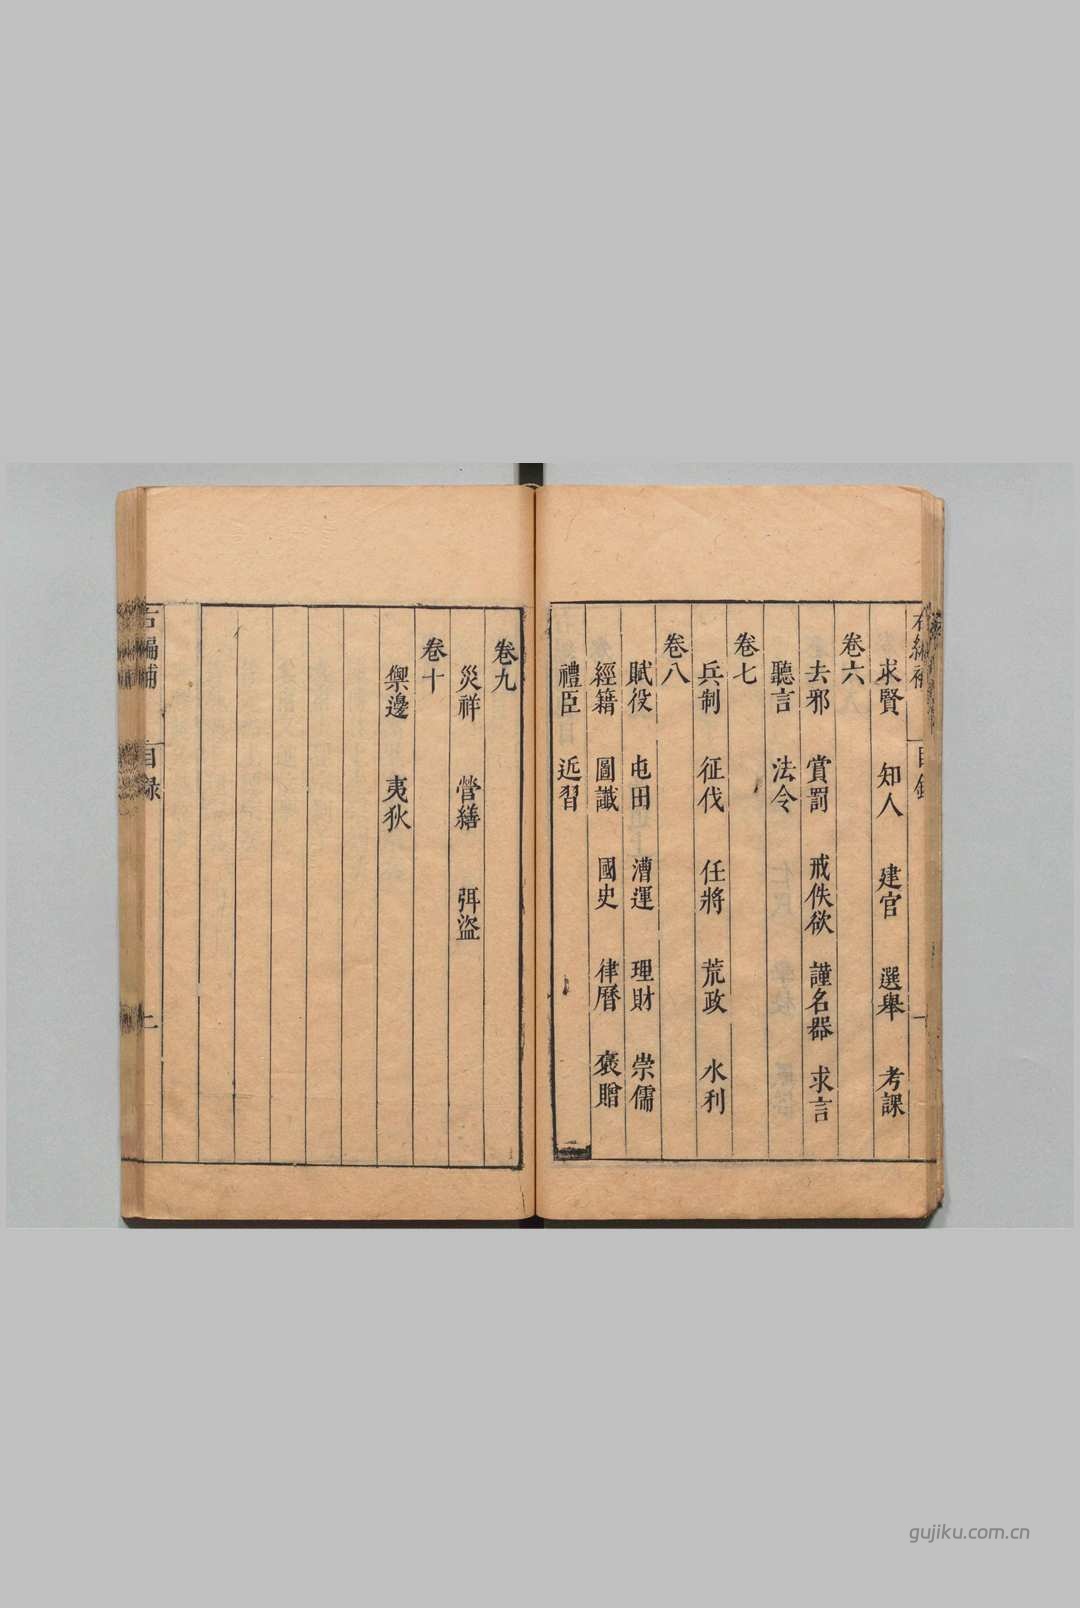 求賢 知人 建官 選舉 考課
卷六
去邪 賞罰 戒佚欲 謹名器 求言
聽言 法令
卷七
兵制 征伐 任將 荒政 水利
卷八
賦役 屯田 漕運 理財 崇儒
經籍 圖讖 國史 律曆 褒贈
禮臣 近習
卷九
災祥 營繕 弭盜
卷十
禦邊 夷狄
右編補 目録 二
gujiku.com.cn